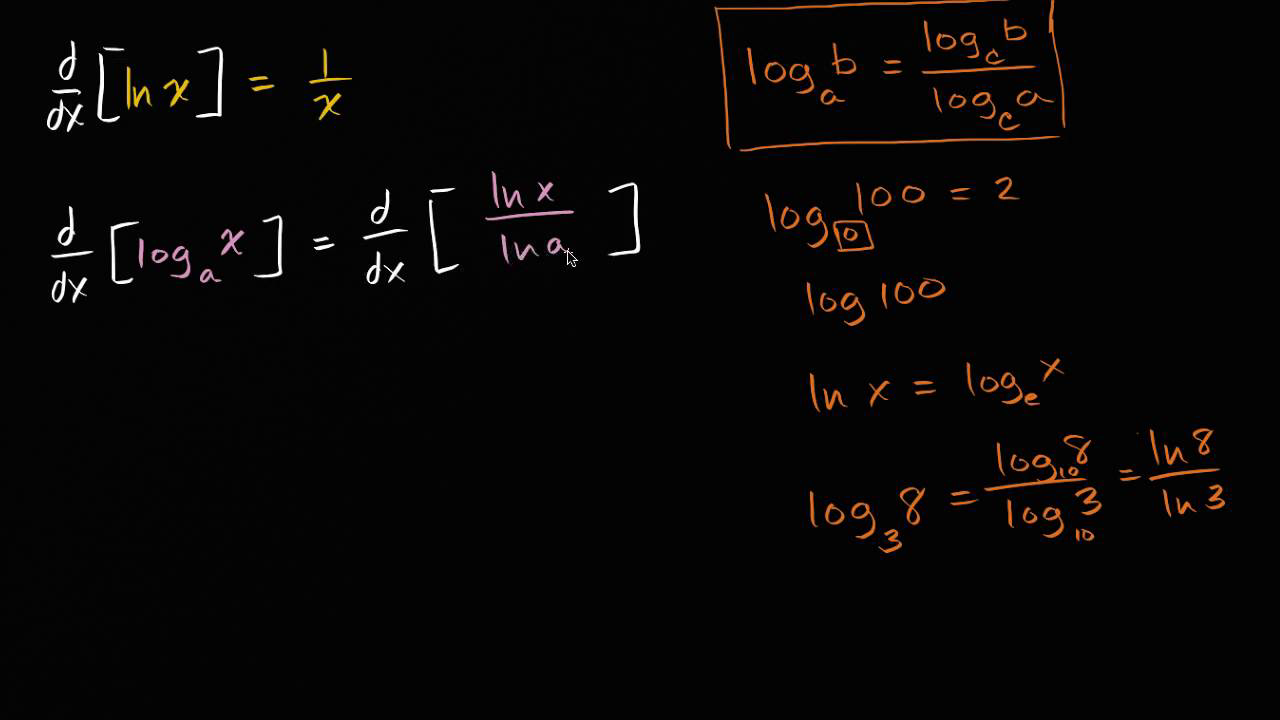 d/dx [ln x] = 1/x
d/dx [logₐ x] = d/dx [ln x / ln a]
logₐ b = log_c b / log_c a
log₁₀ 100 = 2
log 100
ln x = logₑ x
log₃ 8 = log₁₀ 8 / log₁₀ 3 = ln 8 / ln 3